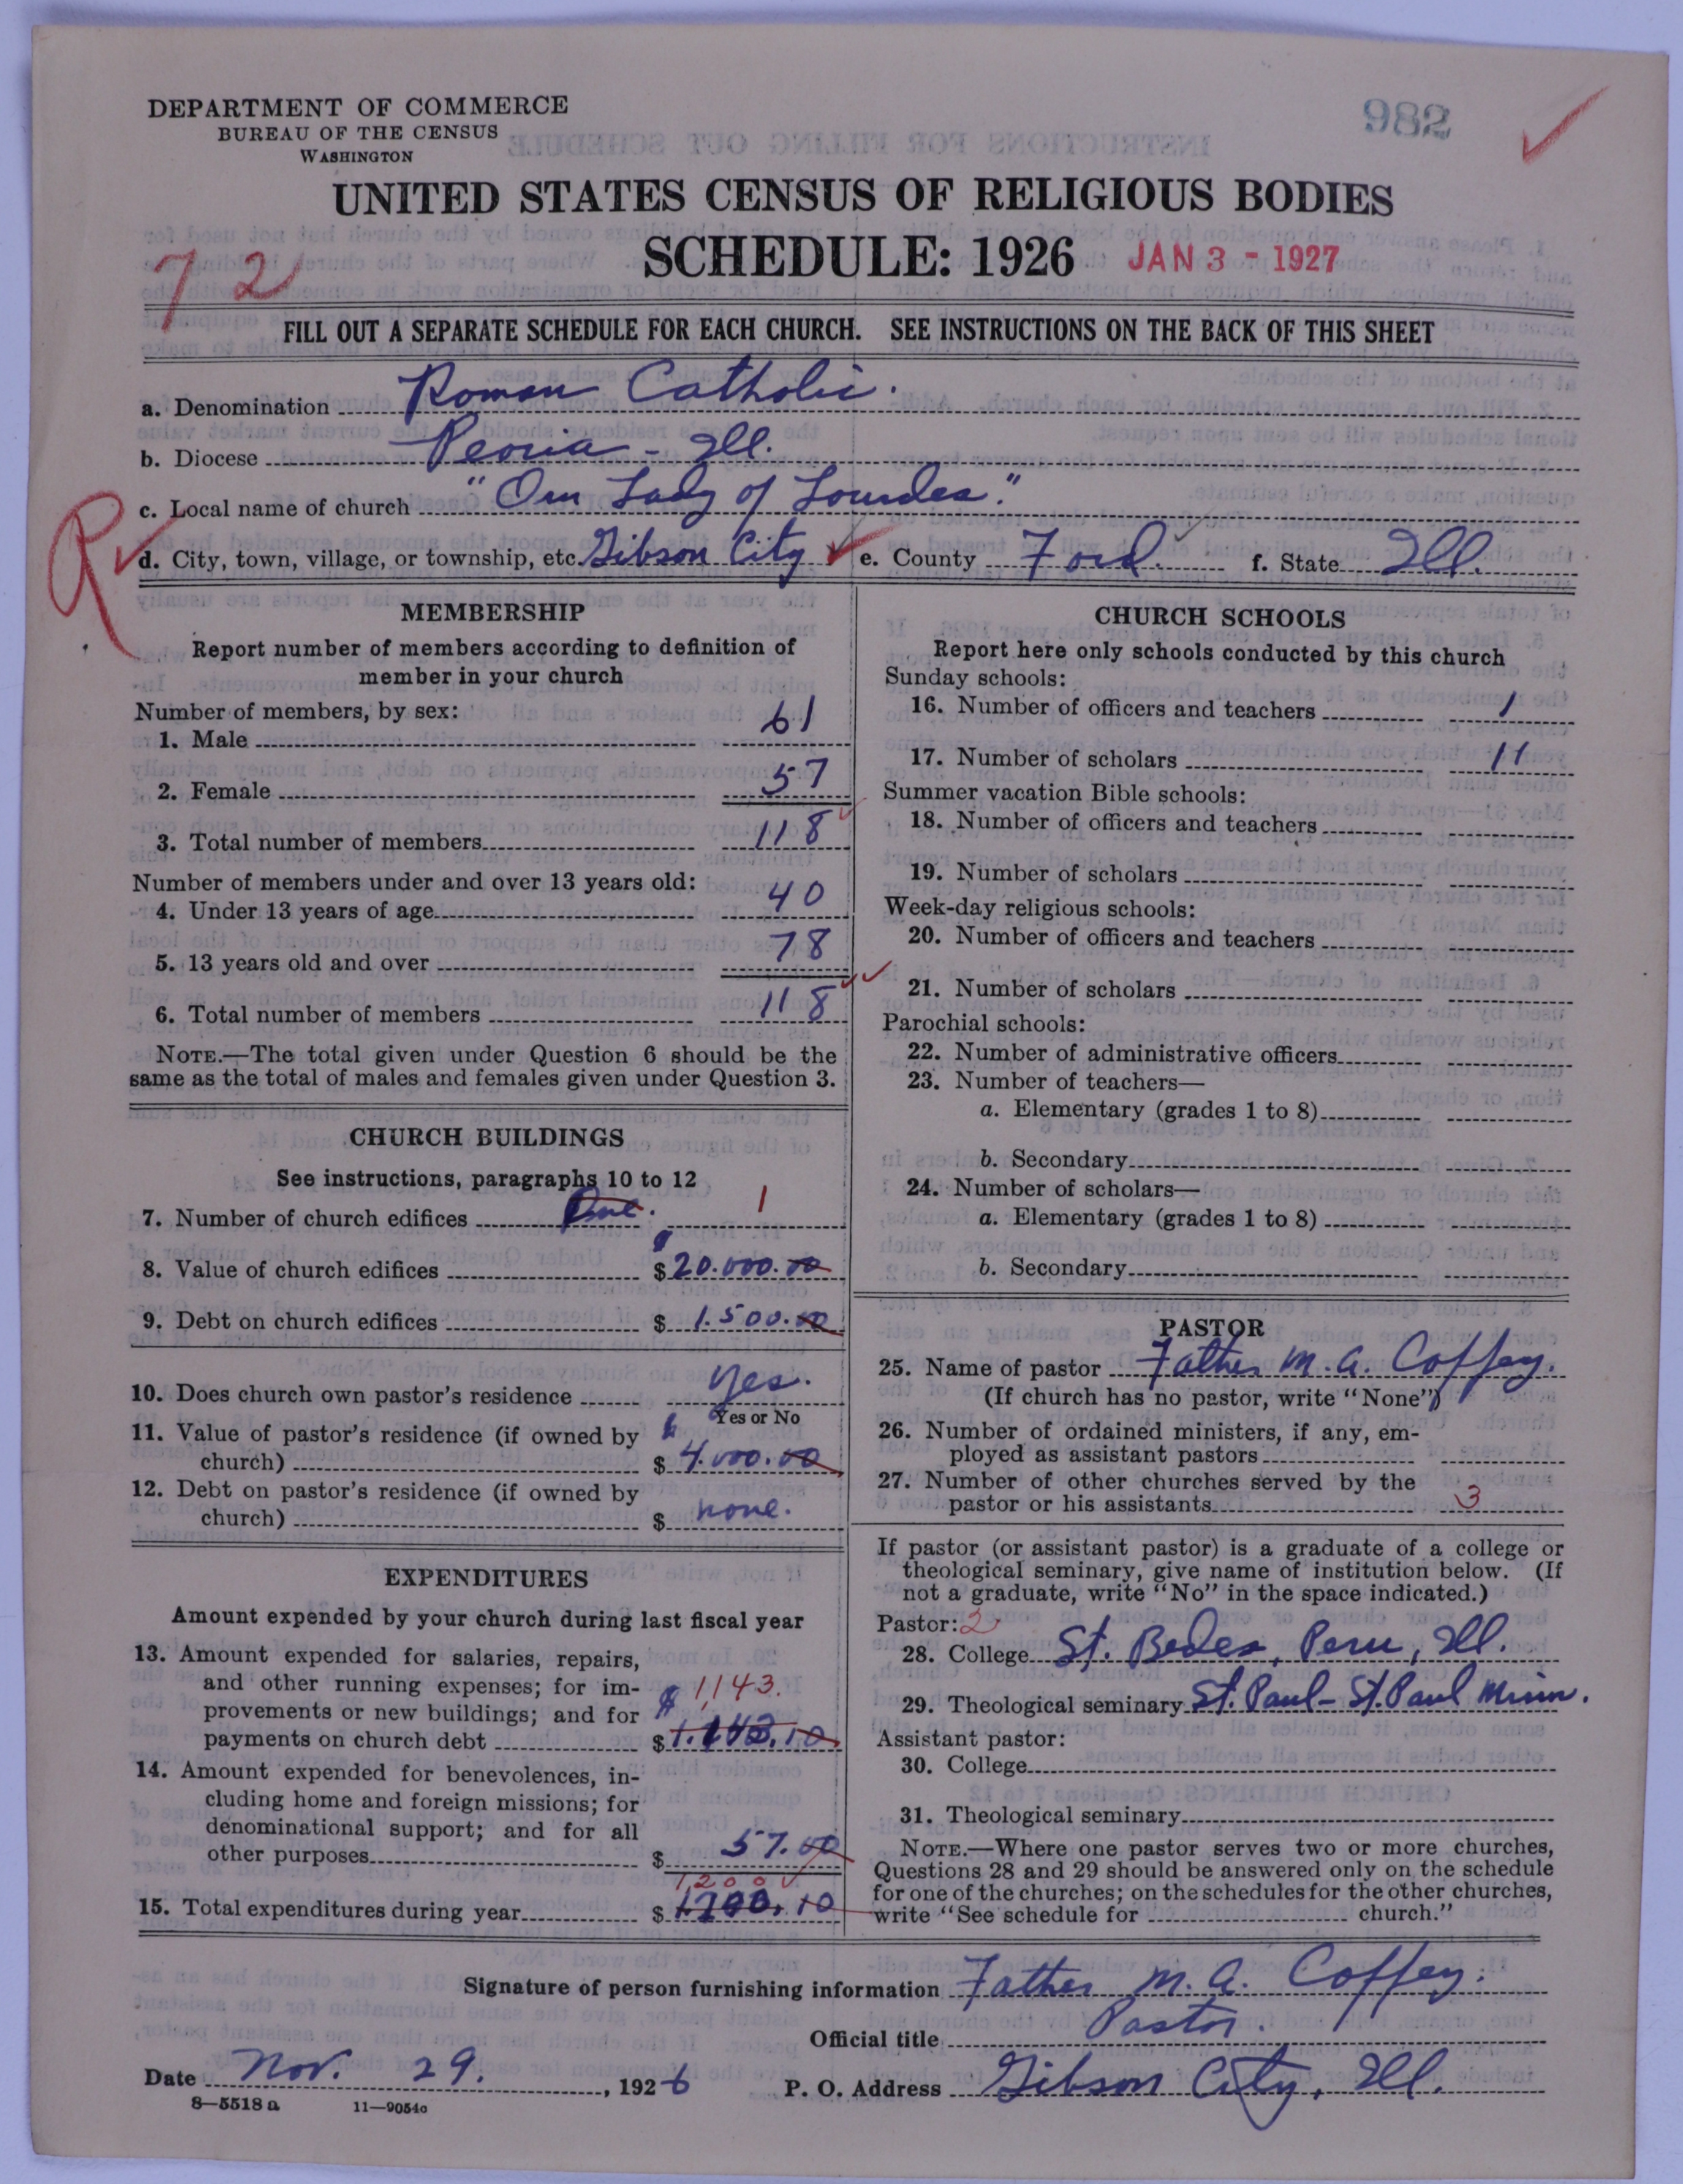 DEPARTMENT OF COMMERCE
BUREAU OF THE CENSUS
WASHINGTON
982
UNITED STATES CENSUS OF RELIGIOUS BODIES
SCHEDULE: 1926 JAN 3 - 1927
72
FILL OUT A SEPARATE SCHEDULE FOR EACH CHURCH. SEE INSTRUCTIONS ON THE BACK OF THIS SHEET
a. Denomination Roman Catholic.
b. Diocese Peoria - Ill.
c. Local name of church "Our Lady of Lourdes."
R
d. City, town, village, or township, etc. Gibson City e. County Ford. f. State Ill.
MEMBERSHIP
Report number of members according to definition of
member in your church
Number of members, by sex:
1. Male 61
2. Female 57
3. Total number of members 118
Number of members under and over 13 years old:
4. Under 13 years of age 40
5. 13 years old and over 78
6. Total number of members 118
NOTE.—The total given under Question 6 should be the
same as the total of males and females given under Question 3.
CHURCH BUILDINGS
See instructions, paragraphs 10 to 12
7. Number of church edifices One. 1
8. Value of church edifices $ 20.000.00
9. Debt on church edifices $ 1.500.00
10. Does church own pastor's residence Yes.
Yes or No
11. Value of pastor's residence (if owned by
church) $ 4.000.00
12. Debt on pastor's residence (if owned by
church) $ none.
EXPENDITURES
Amount expended by your church during last fiscal year
13. Amount expended for salaries, repairs,
and other running expenses; for im-
provements or new buildings; and for $ 1,143.
payments on church debt $ 1.143.10
14. Amount expended for benevolences, in-
cluding home and foreign missions; for
denominational support; and for all
other purposes $ 57.00
1,200
15. Total expenditures during year $ 1200.10
CHURCH SCHOOLS
Report here only schools conducted by this church
Sunday schools:
16. Number of officers and teachers 1
17. Number of scholars 11
Summer vacation Bible schools:
18. Number of officers and teachers
19. Number of scholars
Week-day religious schools:
20. Number of officers and teachers
21. Number of scholars
Parochial schools:
22. Number of administrative officers
23. Number of teachers—
a. Elementary (grades 1 to 8)
b. Secondary
24. Number of scholars—
a. Elementary (grades 1 to 8)
b. Secondary
PASTOR
25. Name of pastor Father M. A. Coffey.
(If church has no pastor, write "None")
26. Number of ordained ministers, if any, em-
ployed as assistant pastors
27. Number of other churches served by the
pastor or his assistants 3
If pastor (or assistant pastor) is a graduate of a college or
theological seminary, give name of institution below. (If
not a graduate, write "No" in the space indicated.)
Pastor: 2
28. College St. Bedes, Peru, Ill.
29. Theological seminary St. Paul - St. Paul Minn.
Assistant pastor:
30. College
31. Theological seminary
NOTE.—Where one pastor serves two or more churches,
Questions 28 and 29 should be answered only on the schedule
for one of the churches; on the schedules for the other churches,
write "See schedule for church."
Signature of person furnishing information Father M. A. Coffey.
Official title Pastor.
Date Nov. 29. , 1926 P. O. Address Gibson City, Ill.
8—5518 a 11—9054c